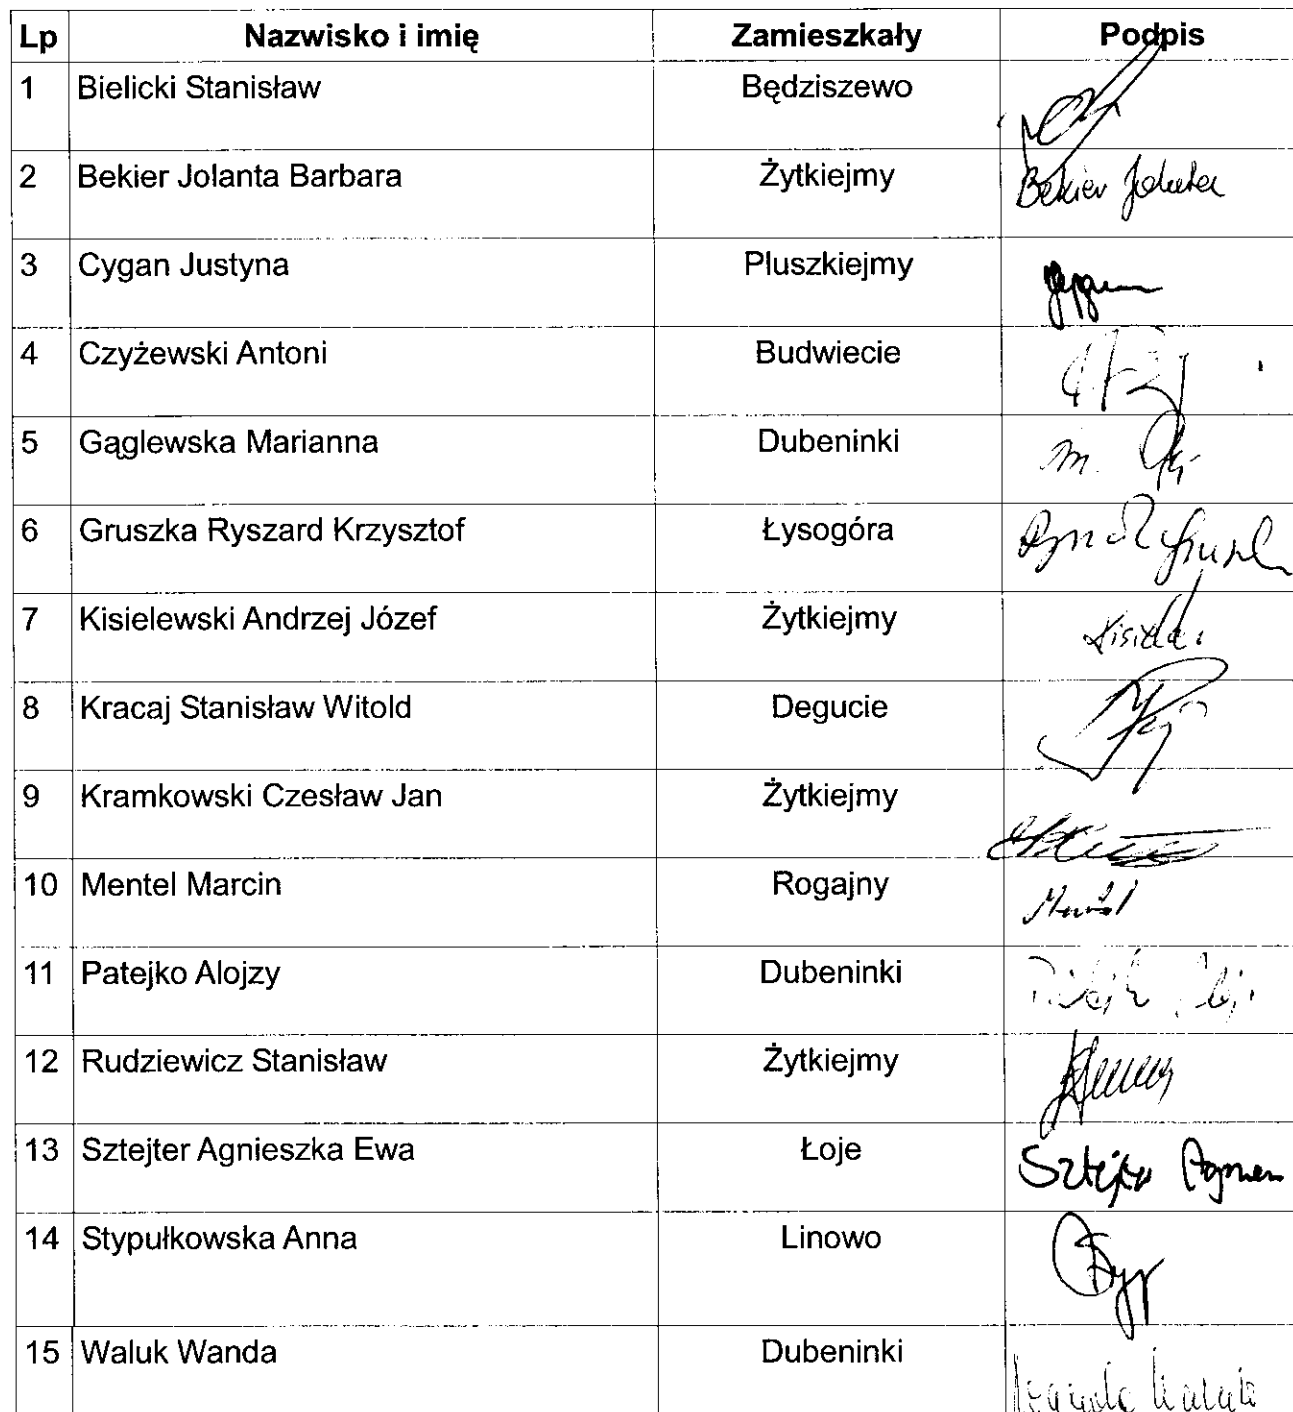 Lp Nazwisko i imię Zamieszkały Podpis
1 Bielicki Stanisław Będziszewo
2 Bekier Jolanta Barbara Żytkiejmy Bekier Jolanta
3 Cygan Justyna Pluszkiejmy
4 Czyżewski Antoni Budwiecie
5 Gąglewska Marianna Dubeninki
6 Gruszka Ryszard Krzysztof Łysogóra
7 Kisielewski Andrzej Józef Żytkiejmy
8 Kracaj Stanisław Witold Degucie
9 Kramkowski Czesław Jan Żytkiejmy
10 Mentel Marcin Rogajny
11 Patejko Alojzy Dubeninki
12 Rudziewicz Stanisław Żytkiejmy
13 Sztejter Agnieszka Ewa Łoje
14 Stypułkowska Anna Linowo
15 Waluk Wanda Dubeninki